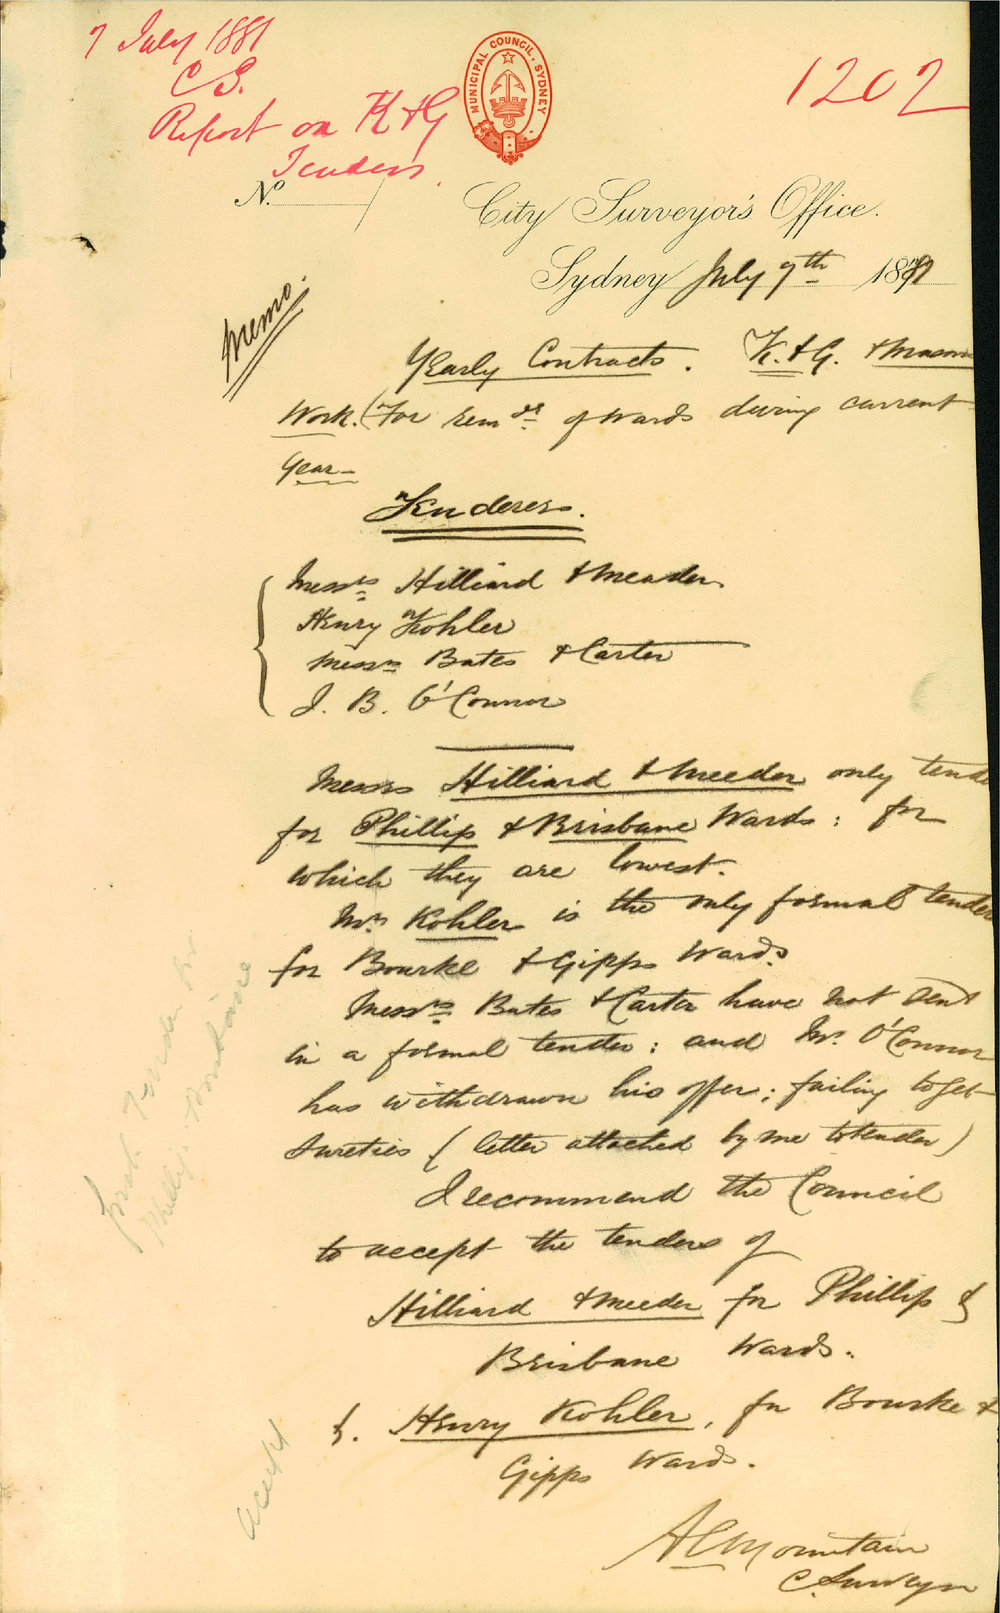 7 July 1881
C S.
Report on K & G
Tenders
1202
MUNICIPAL COUNCIL, SYDNEY
No.
City Surveyor's Office.
Sydney July 7th 1881
Memo.
Yearly Contracts. K. & G. & Mason
Work. (For remdr of Wards during current
Year—
Tenderers.
Messrs Hilliard & Meader
Henry Kohler
Messrs Bates & Carter
J. B. O'Connor
Messrs Hilliard & Meeder only tende
for Phillip & Brisbane Wards: for
which they are lowest.
Mr. Kohler is the only formal tender
for Bourke & Gipps Wards
Messrs Bates & Carter have not sent
in a formal tender: and Mr. O'Connor
has withdrawn his offer; failing to get
Sureties (letter attached by me to tender)
I recommend the Council
to accept the tenders of
Hilliard & Meeder for Phillip &
Brisbane Wards.
&. Henry Kohler, for Bourke &
Gipps Wards.
A C Mountain
C. Surveyor
Tender for
Phillip & Brisbane
accept